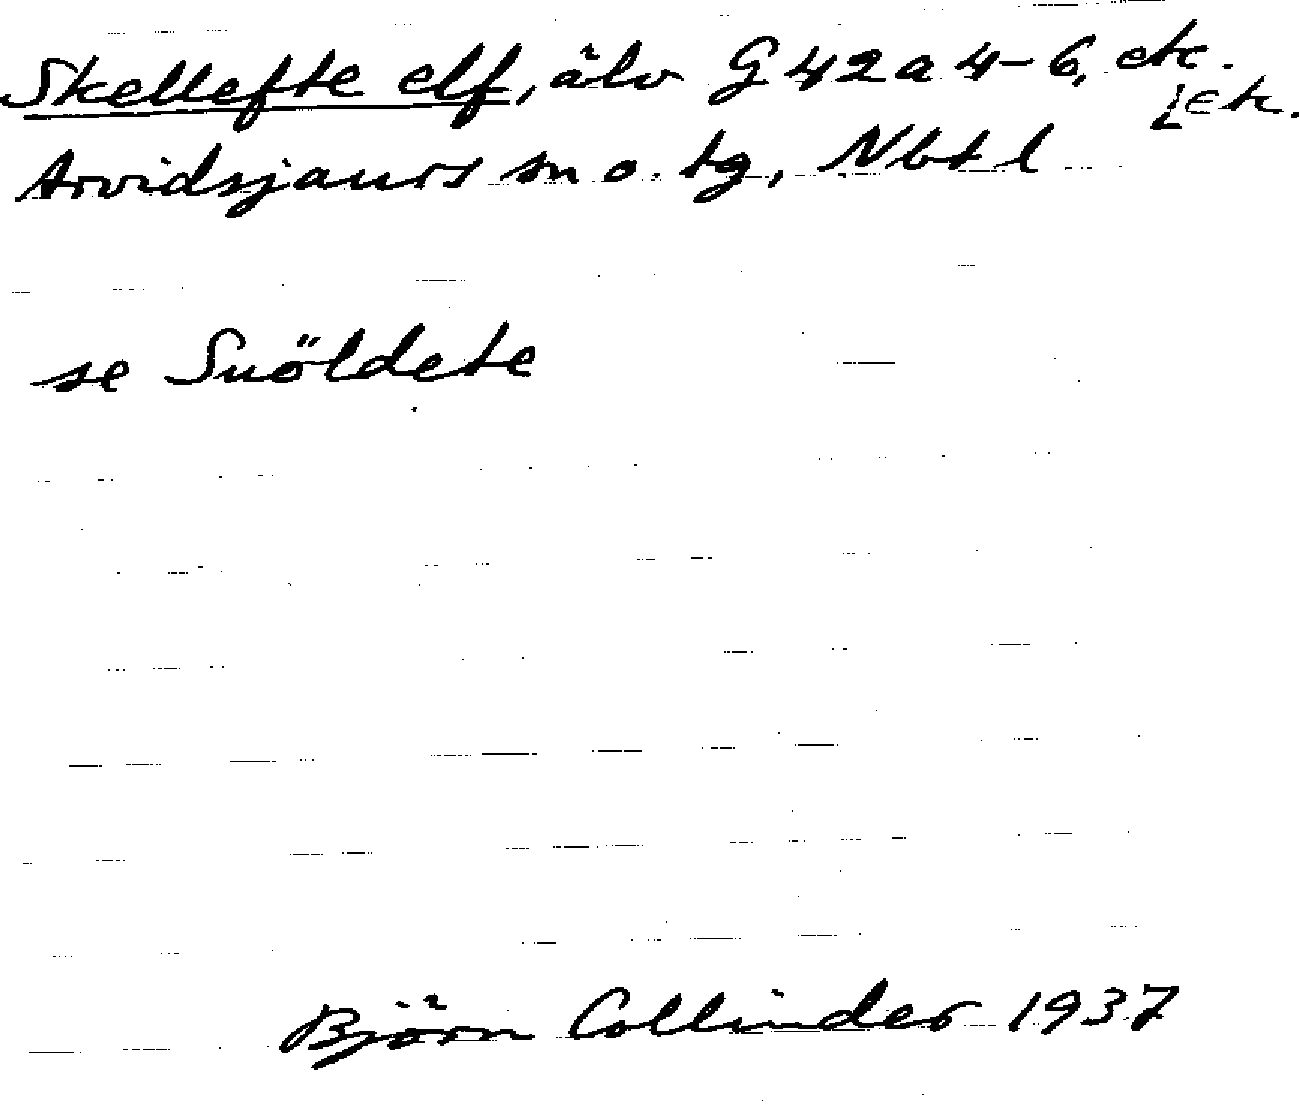 Skellefte elf, älv G 42 a 4-6, etc.
[etc.
Arvidsjaurs sn o. tg, Nbtl
se Suöldete
Björn Collinder 1937